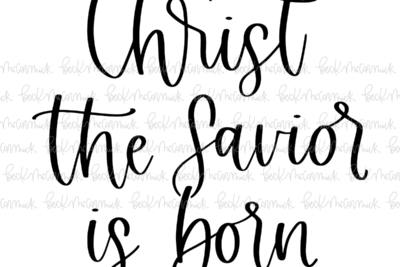 Christ
the Savior
is born